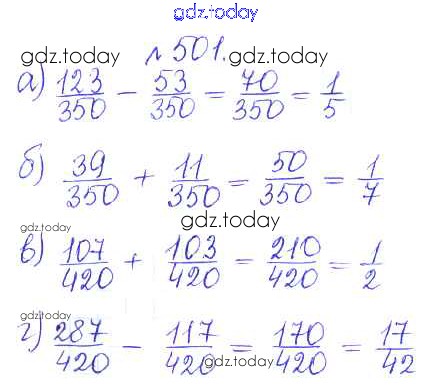 gdz.today
gdz.today № 501. gdz.today
а) 123/350 - 53/350 = 70/350 = 1/5
б) 39/350 + 11/350 = 50/350 = 1/7
gdz.today gdz.today
в) 107/420 + 103/420 = 210/420 = 1/2
gdz.today
г) 287/420 - 117/420 = 170/420 = 17/42
gdz.today